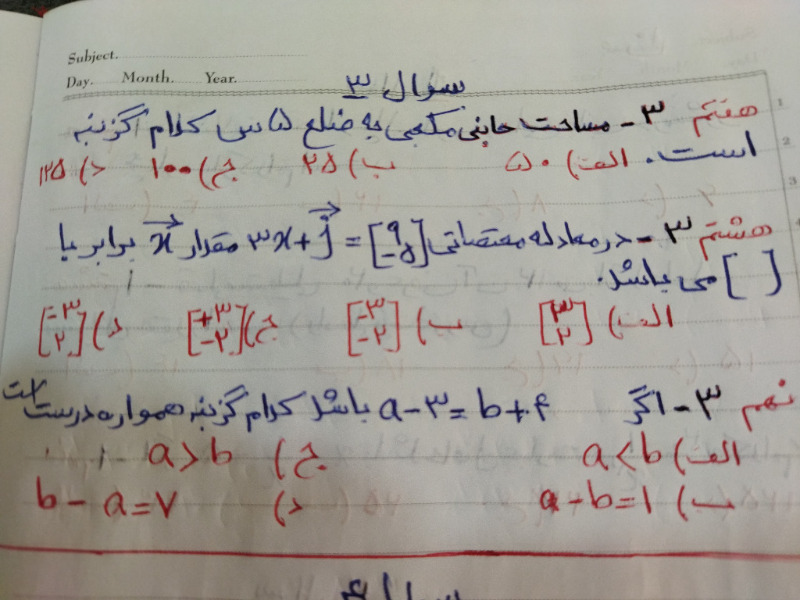 Subject.
Day. Month. Year.
سوال ۳
هفتم ۳ـ مساحت جانبی مکعبی به ضلع ۵ سانس کدام گزینه
است. الف) ۵۰ ب) ۲۵ ج) ۱۰۰ د) ۱۲۵
هشتم ۳ـ در معادله مختصاتی [۹ -۵] = 3x + j مقدار x برابر با
[ ] می باشد.
الف) [۳ ۲] ب) [-۳ -۲] ج) [+۳ -۲] د) [-۳ ۲]
نهم ۳ـ اگر a - ۳ = b + ۴ باشد کدام گزینه همواره درست است
الف) a < b ج) a > b
ب) a - b = ۱ د) b - a = ۷